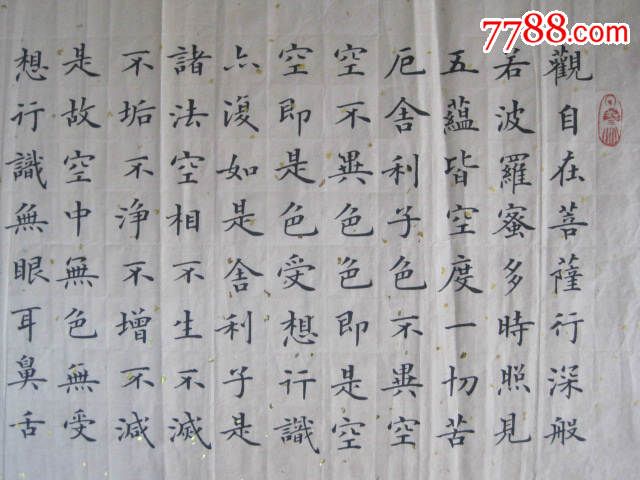 7788.com
觀自在菩薩行深般
若波羅蜜多時照見
五蘊皆空度一切苦
厄舍利子色不異空
空不異色色即是空
空即是色受想行識
亦復如是舍利子是
諸法空相不生不滅
不垢不淨不增不減
是故空中無色無受
想行識無眼耳鼻舌